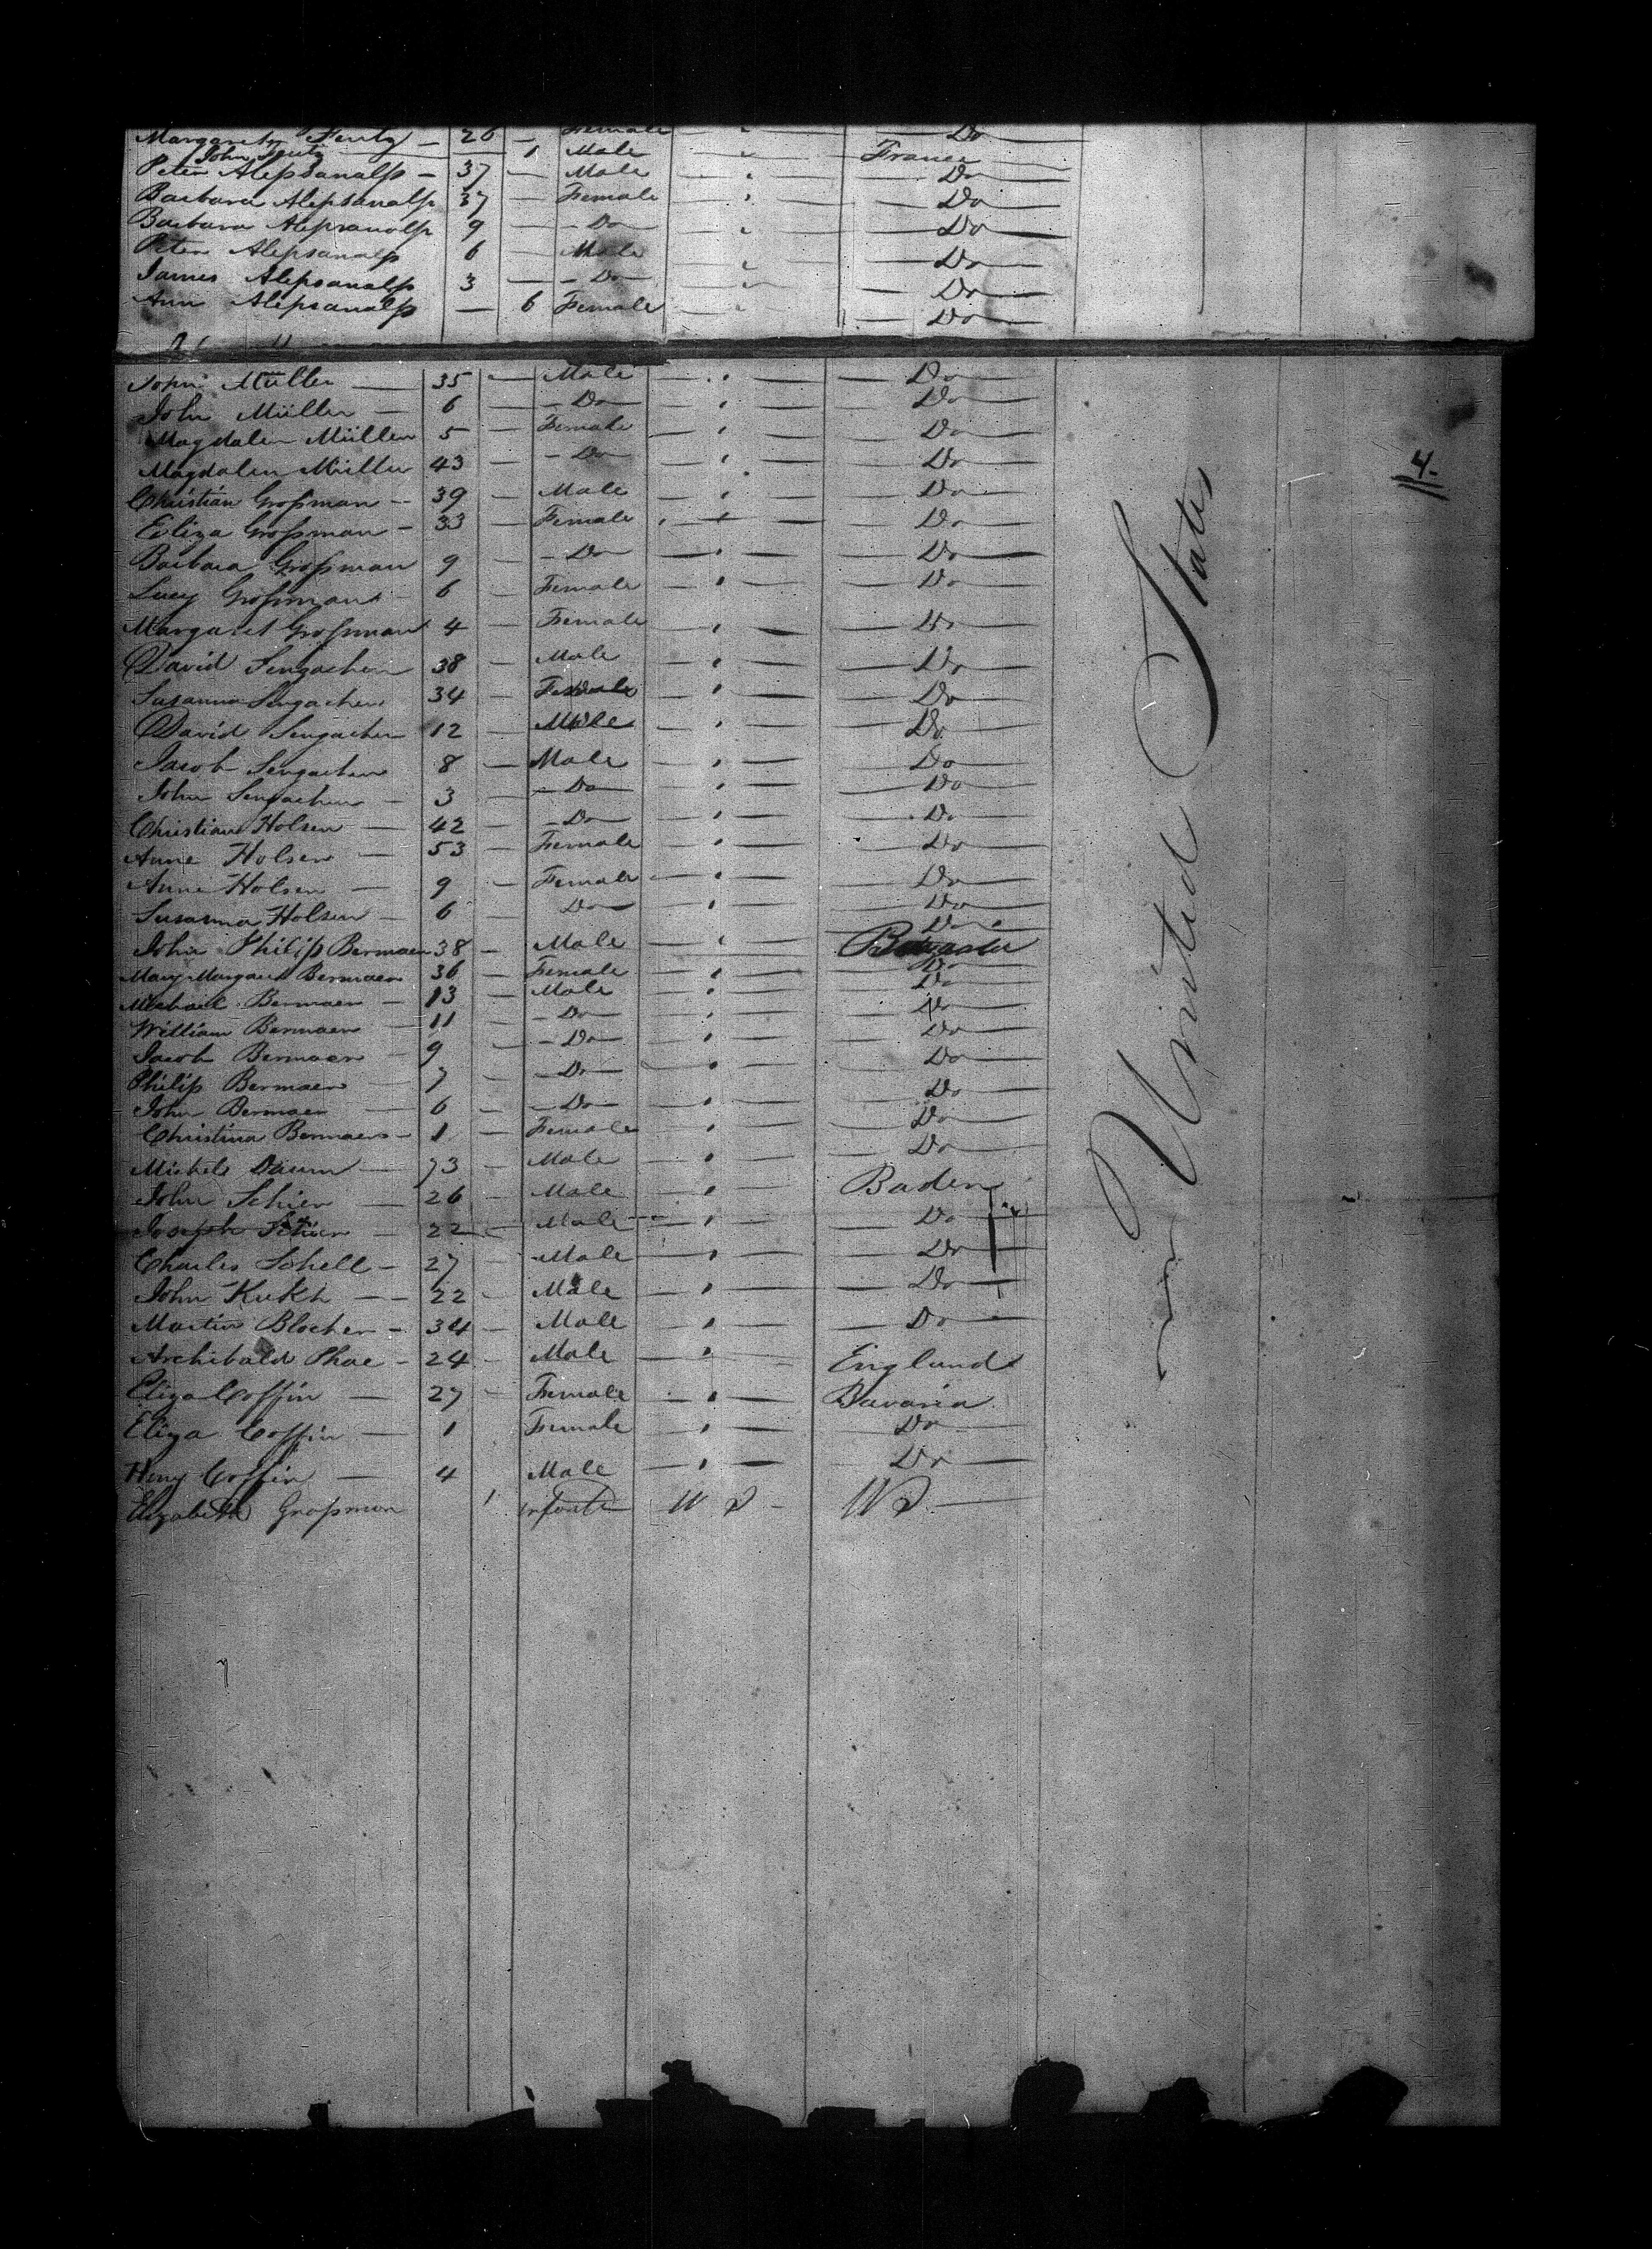 Margaretz Feutz — 26 — Female " Do
John Feutz — 1 Male " France
Peter Alepsanalp — 37 — Male " Do
Barbara Alepsanalp 37 — Female " Do
Barbara Alepsanalp 9 — Do " Do
Peter Alepsanalp 6 — Male " Do
James Alepsanalp 3 — Do " Do
Ann Alepsanalp — 6 Female " Do
John Müller — 35 — Male — " — Do
John Müller — 6 — Do — " — Do
Magdalen Müller 5 — Female — " — Do
Magdalen Müller 43 — Do — " — Do
Christian Großman — 39 — Male — " — Do
Eliza Großman — 33 — Female — " — Do
Barbara Großman 9 — Do — " — Do
Lucy Großman — 6 — Female — " — Do
Margaret Großman 4 — Female — " — Do
David Sengachen 38 — Male — " — Do
Susanna Sengachen 34 — Female — " — Do
David Sengachen 12 — Male — " — Do
Jacob Sengachen 8 — Male — " — Do
John Sengachen — 3 — Do — " — Do
Christian Holsen — 42 — Do — " — Do
Anne Holsen — 53 — Female — " — Do
Anne Holsen — 9 — Female — " — Do
Susanna Holsen — 6 — Do — " — Do
Do
John Philip Bermaen 38 — Male — " Bavaria
Mary Margaret Bermaen 36 — Female — " — Do
Michael Bermaen — 13 — Male — " — Do
William Bermaen — 11 — Do — " — Do
Jacob Bermaen — 9 — Do — " — Do
Philip Bermaen — 7 — Do — " — Do
John Bermaen — 6 — Do — " — Do
Christina Bermaen — 1 — Female — " — Do
Michele Daum — 73 — Male — " — Do
John Schier — 26 — Male — " — Baden
Joseph Schier — 22 — Male — " — Do
Charles Schell — 27 — Male — " — Do
John Kukh — 22 — Male — " — Do
Martin Blocher — 34 — Male — " — Do
Archibald Phae — 24 — Male — " England
Eliza Coffin — 27 — Female — " — Bavaria
Eliza Coffin — 1 Female — " — Do
Heny Coffin — 4 Male — " — Do
Elizabeth Großman 1 infant
United States
4